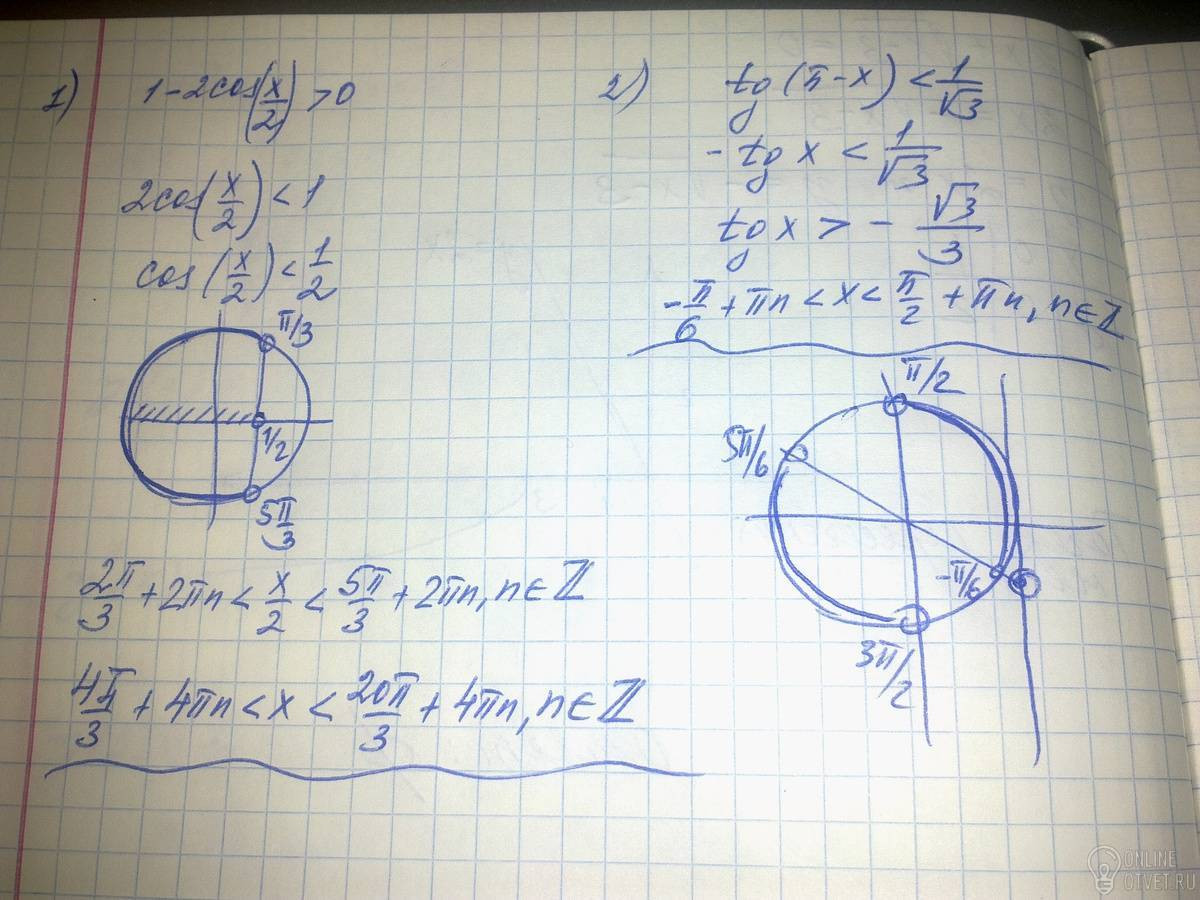 1) 1-2cos(x/2)>0
2cos(x/2)<1
cos(x/2)<1/2
π/3
1/2
5π/3
2π/3+2πn<x/2<5π/3+2πn, n∈ℤ
4π/3+4πn<x<20π/3+4πn, n∈ℤ
2) tg(π-x)<1/√3
-tg x<1/√3
tg x>-√3/3
-π/6+πn<x<π/2+πn, n∈ℤ
π/2
5π/6
-π/6
3π/2
ONLINE
OTVET.RU